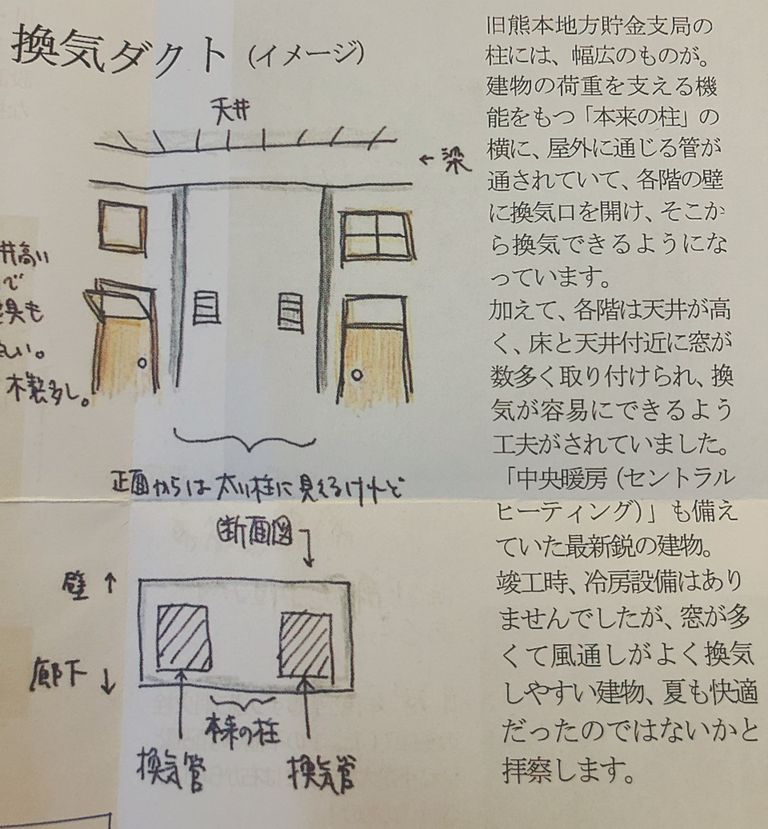 換気ダクト (イメージ)
天井
←梁
井高い
で
具も
い。
木製多し。
正面からは太い柱に見えるけれど
断面図
壁↑
廊下↓
本来の柱
換気管
換気管
旧熊本地方貯金支局の
柱には、幅広のものが。
建物の荷重を支える機
能をもつ「本来の柱」の
横に、屋外に通じる管が
通されていて、各階の壁
に換気口を開け、そこか
ら換気できるようにな
っています。
加えて、各階は天井が高
く、床と天井付近に窓が
数多く取り付けられ、換
気が容易にできるよう
工夫がされていました。
「中央暖房(セントラル
ヒーティング)」も備え
ていた最新鋭の建物。
竣工時、冷房設備はあり
ませんでしたが、窓が多
くて風通しがよく換気
しやすい建物、夏も快適
だったのではないかと
拝察します。